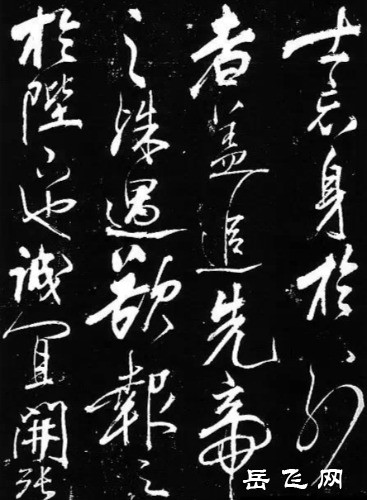 士忘身於外
者盖追先帝
之殊遇欲報之
於陛下也誠宜開張
岳飞网